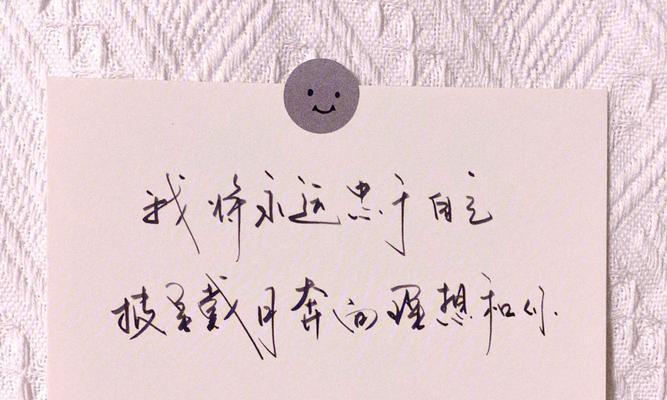 我将永远忠于自己
披星戴月奔向理想和你